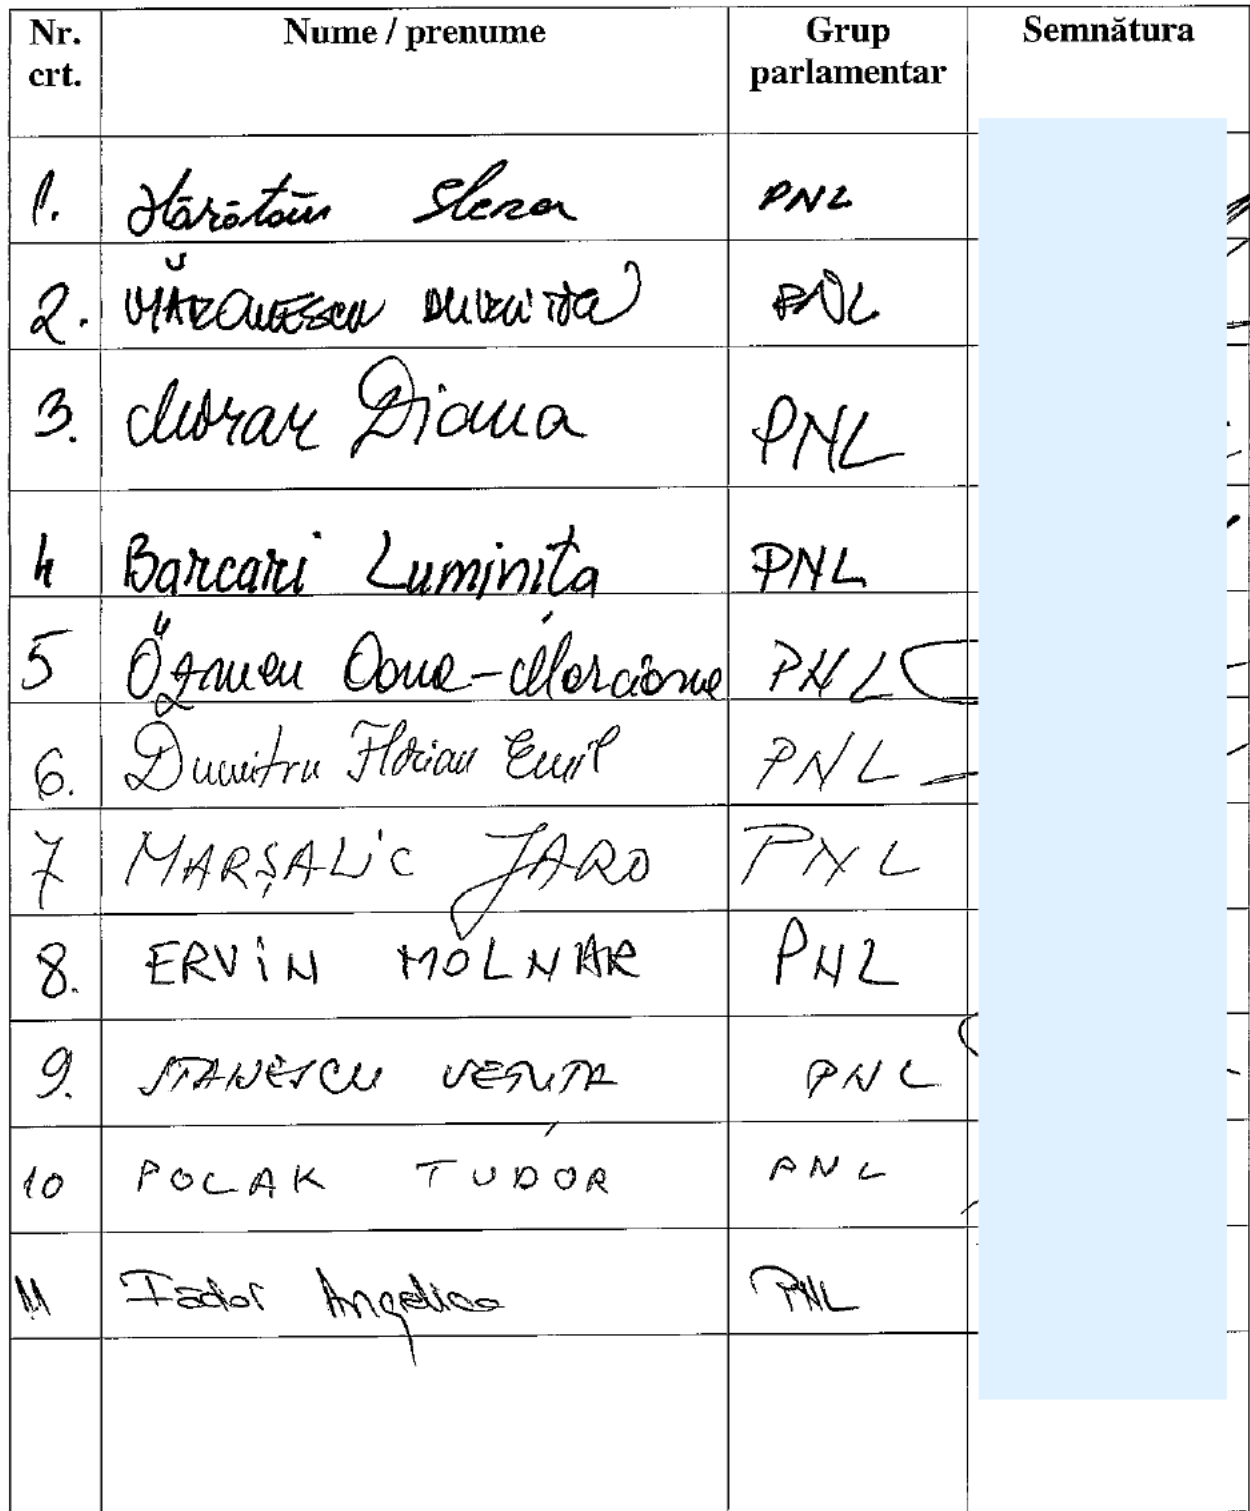 Nr. crt. Nume / prenume Grup parlamentar Semnătura
1. Hărătău Elena PNL
2. MĂRCULESCU DUMITRIȚA PNL
3. Morar Diana PNL
4 Barcari Luminița PNL
5 Özmen Oana-Marciana PNL
6. Dumitru Florian Emil PNL
7 MARȘALIC JARO PNL
8. ERVIN MOLNAR PNL
9. STANESCU VETUTA PNL
10 POLAK TUDOR PNL
11 Fădor Angelica PNL